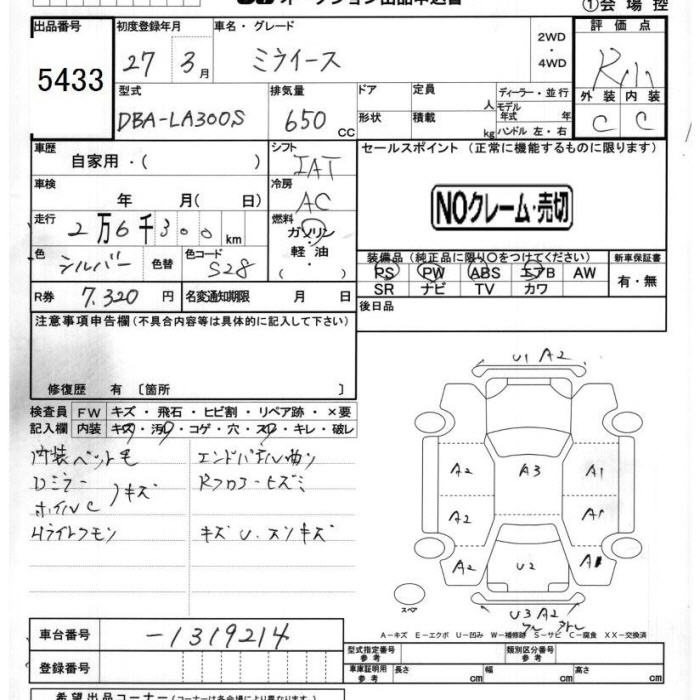 ①会場控
出品番号
5433
初度登録年月
27 3月
車名・グレード
ミライース
2WD
・
4WD
評価点
外装 内装
C C
型式
DBA-LA300S
排気量
650 CC
ドア
形状
定員 人
積載 kg
ディーラー・並行
モデル年式 年
ハンドル 左・右
車歴
自家用・( )
シフト
IAT
車検
年 月( 日)
冷房
AC
走行
2万6千300 km
燃料
ガソリン・
軽油
・( )
色
シルバー
色替
色コード
S28
R券 7.320 円
名変通知期限 月 日
セールスポイント (正常に機能するものに限ります)
NOクレーム・売切
装備品(純正品に限り○をつけてください)
PS PW ABS エアB AW
SR ナビ TV カワ
新車保証書
有・無
後日品
注意事項申告欄(不具合内容等は具体的に記入して下さい)
修復歴 有 [箇所 ]
検査員 FW キズ・飛石・ヒビ割・リペア跡・×要
記入欄 内装 キズ・汚・コゲ・穴・スレ・キレ・破レ
内装ペット毛
Dミラー
ホイルC キズ
Hライトクモリ
エンドパネル曲り
Rフロアーヒズミ
キズ U.スリキズ
U1 A2
A2 A3 A1
A2 A1
A2 U2 A1
スペア
U3 A2
A－キズ E－エクボ U－凹み W－補修跡 S－サビ C－腐食 XX－交換済
車台番号 -1319214
登録番号
型式指定番号
参考
類別区分番号
参考
車庫証明用
参考
長さ cm 幅 cm 高さ cm
希望出品コーナー(コーナーは各会場により異なります。)